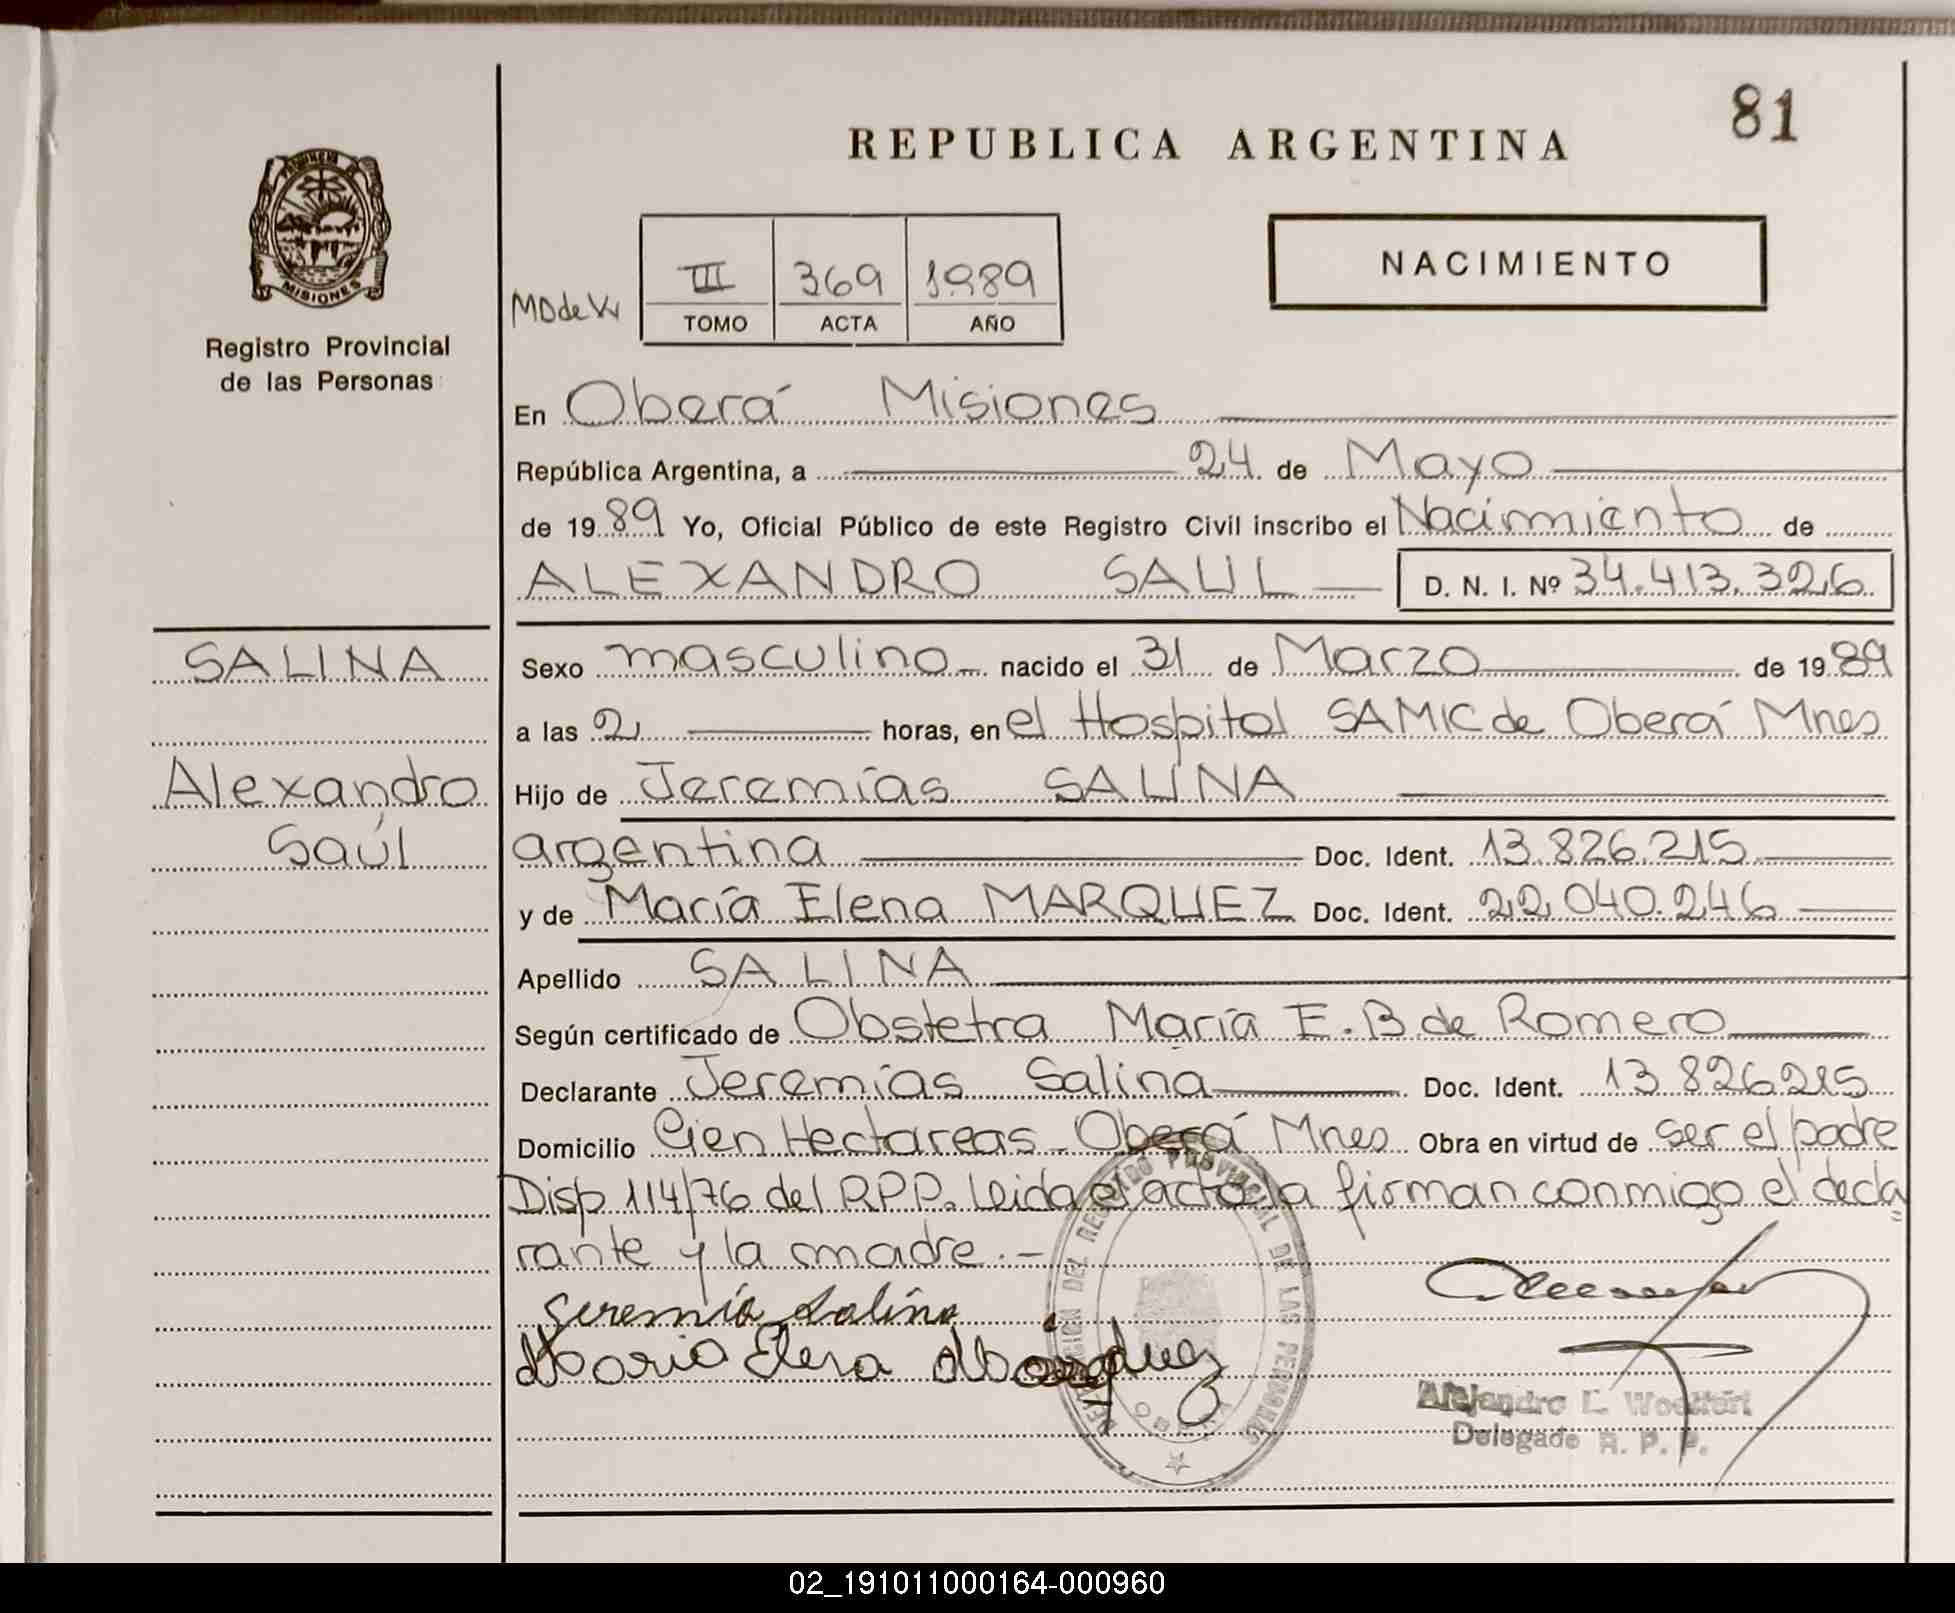 81
REPUBLICA ARGENTINA
PROVINCIA DE MISIONES
Registro Provincial
de las Personas
NACIMIENTO
III 369 1989
TOMO ACTA AÑO
En Oberá Misiones
República Argentina, a 24 de Mayo
de 1989 Yo, Oficial Público de este Registro Civil inscribo el Nacimiento de
ALEXANDRO SAUL D. N. I. Nº 34.413.326
SALINA
Alexandro
Saúl
Sexo masculino nacido el 31 de Marzo de 1989
a las 2 horas, en el Hospital SAMIC de Oberá Mnes
Hijo de Jeremías SALINA
argentina Doc. Ident. 13.826.215
y de María Elena MARQUEZ Doc. Ident. 22.040.246
Apellido SALINA
Según certificado de Obstetra María E. B de Romero
Declarante Jeremías Salina Doc. Ident. 13.826215
Domicilio Cien Hectareas - Oberá Mnes Obra en virtud de ser el padre
Disp 114/76 del R.P.P. Leida el acta la firman conmigo el decla
rante y la madre.-
Jeremía Salina
Maria Elena Marquez
DEL REGISTRO PROVINCIAL DE LAS PERSONAS
Alejandro L.
Delegado R. P. P.
02_191011000164-000960